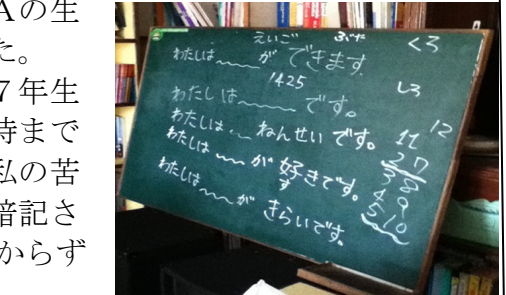 Aの生
た。
7年生
時まで
私の苦
暗記さ
からず
えいご ぶた くろ
わたしは〜〜〜が できます
1425
わたしは〜〜〜です。 しろ
わたしは〜〜 ねんせい です。
わたしは〜〜が 好きです。
す
わたしは〜〜〜が きらいです。
11 12
2 7
3 8
4 9
5 10